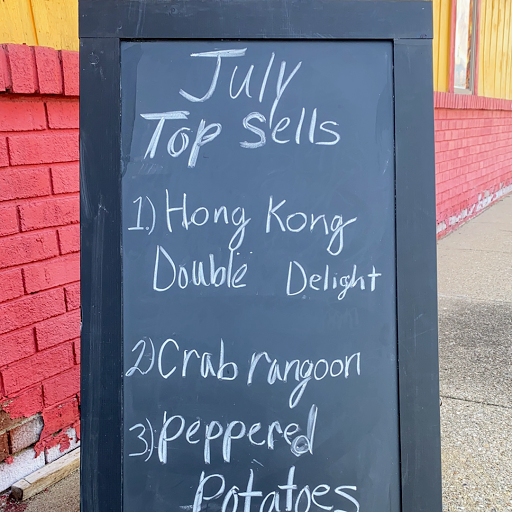 July
Top Sells
1.) Hong Kong
Double Delight
2) Crab rangoon
3) Peppered
Potatoes